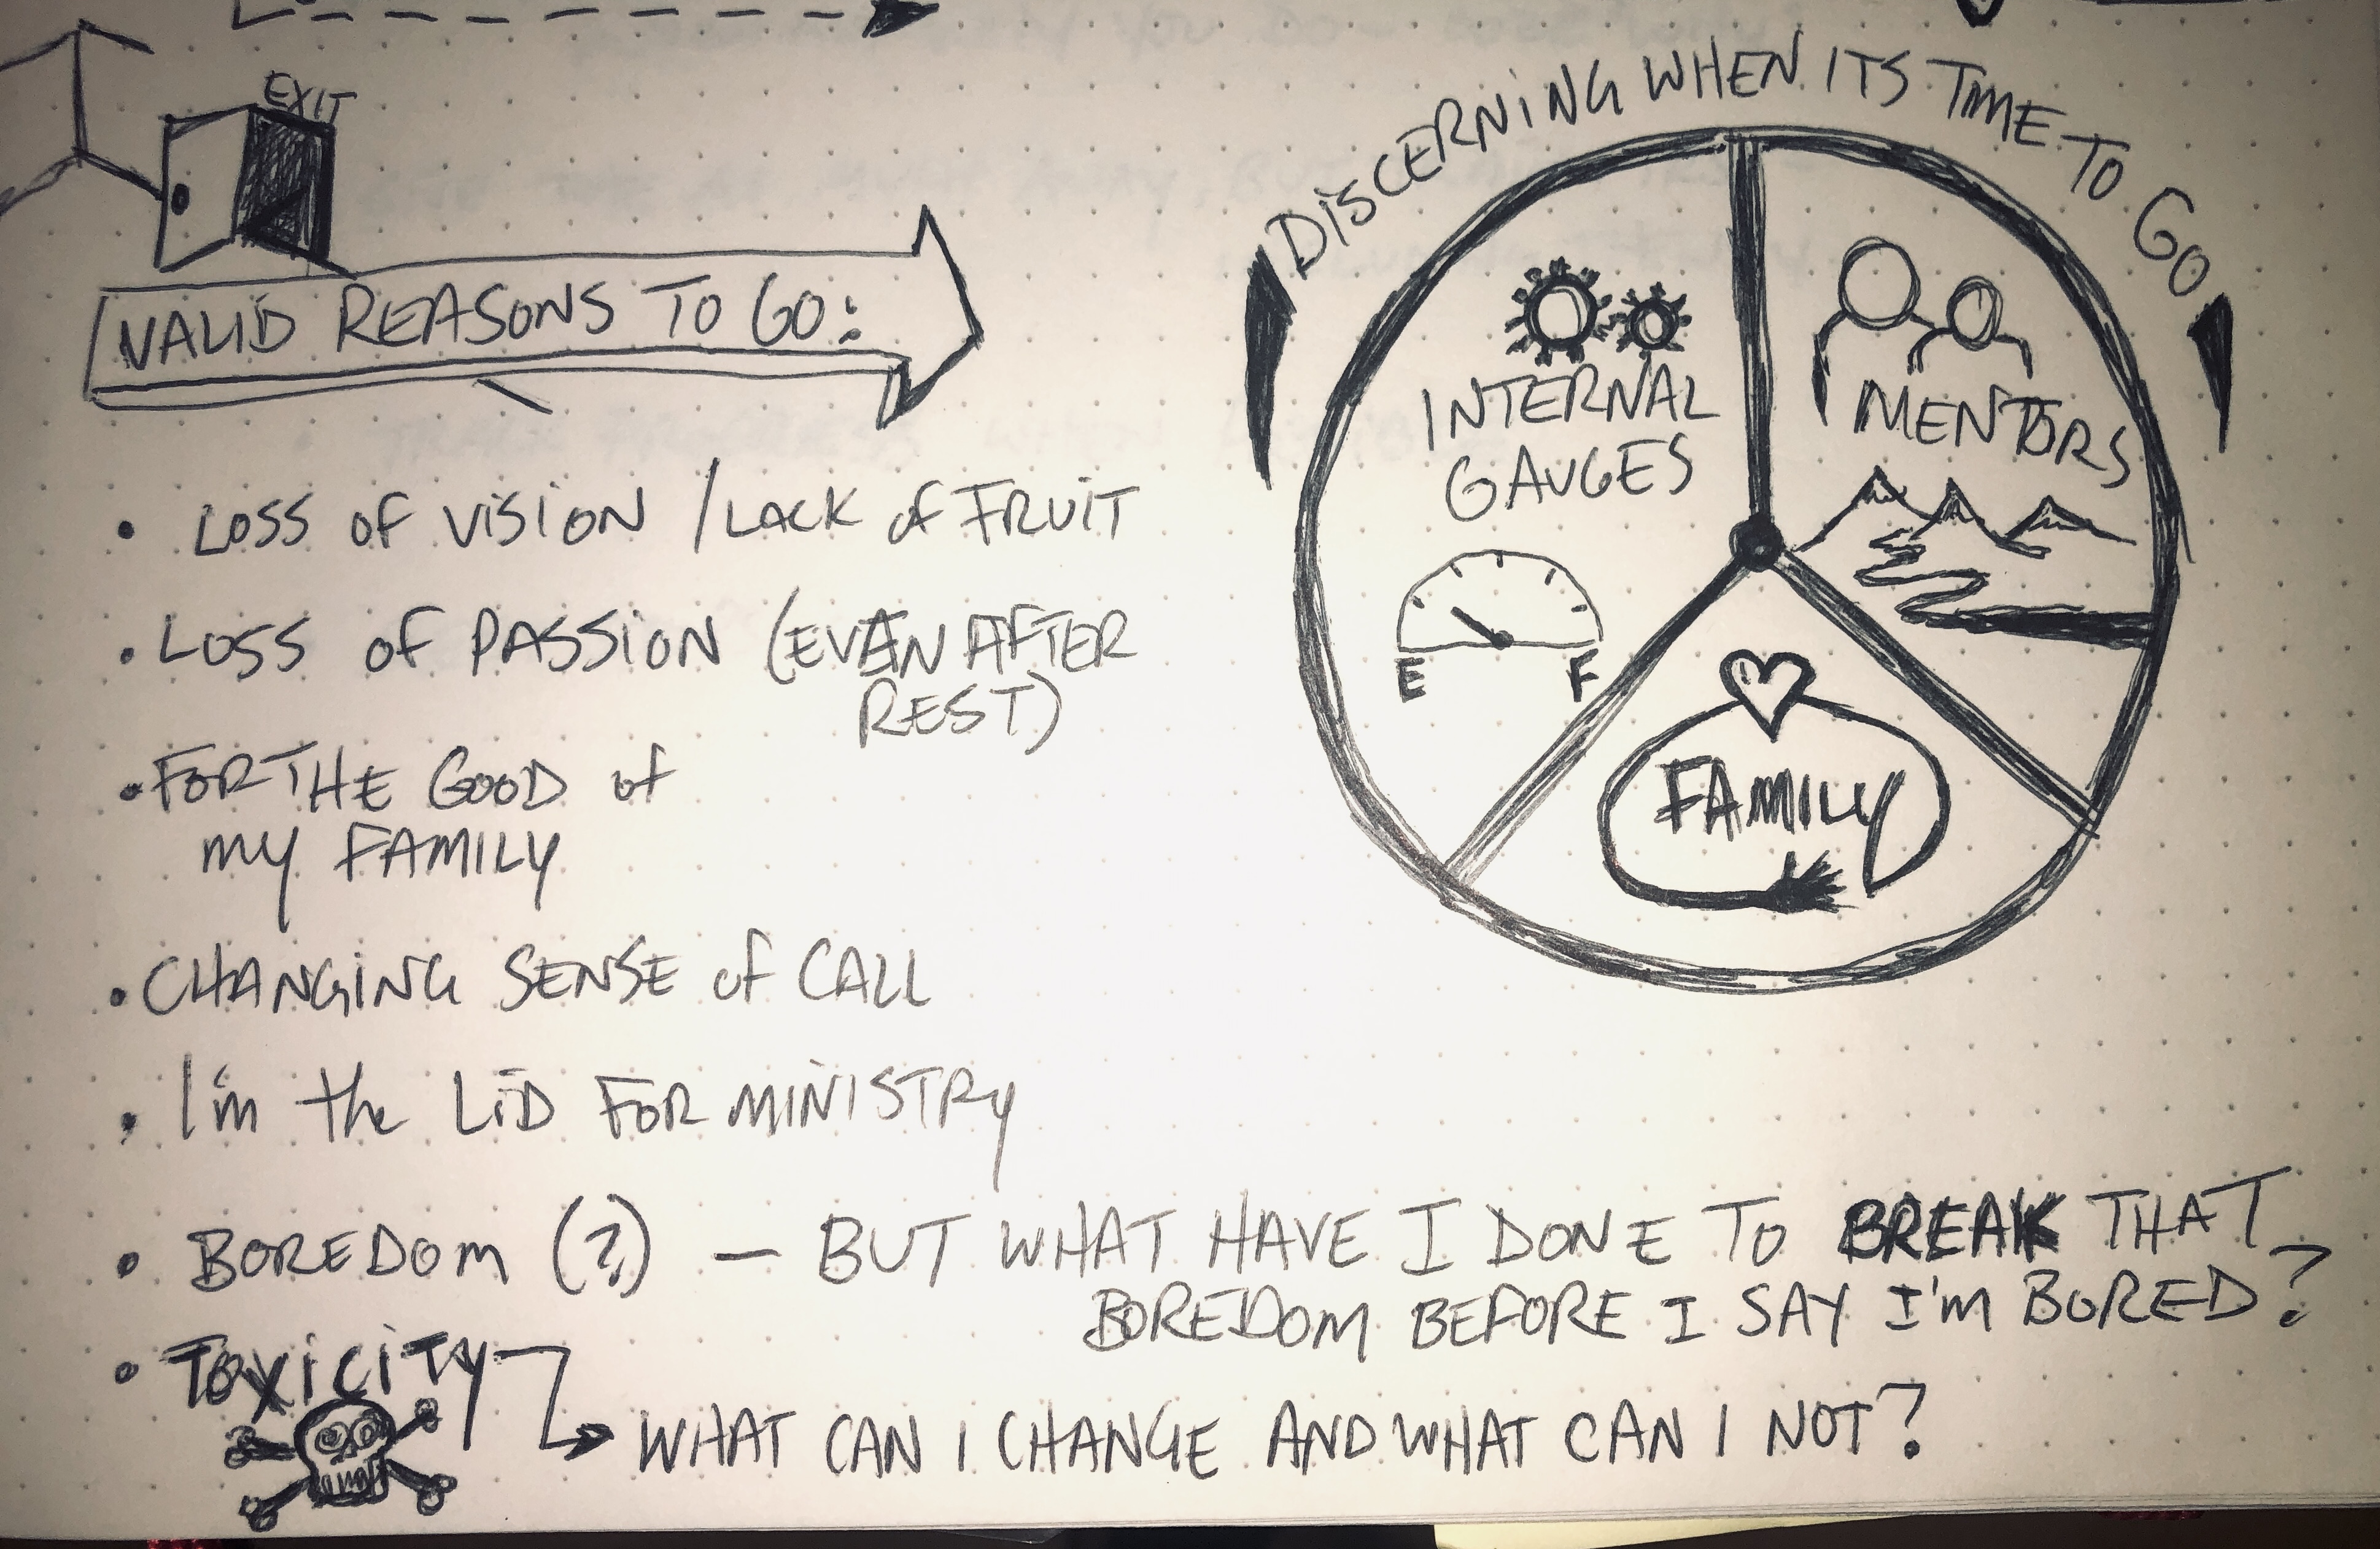 EXIT
VALID REASONS TO GO:
• LOSS OF VISION / LACK OF FRUIT
• LOSS OF PASSION (EVEN AFTER
REST)
• FOR THE GOOD OF
MY FAMILY
• CHANGING SENSE OF CALL
• I'm the LID FOR MINISTRY
• BOREDOM (?) — BUT WHAT HAVE I DONE TO BREAK THAT
BOREDOM BEFORE I SAY I'M BORED?
• TOXICITY
WHAT CAN I CHANGE AND WHAT CAN I NOT?
DISCERNING WHEN ITS TIME TO GO
INTERNAL
GAUGES
E F
MENTORS
FAMILY